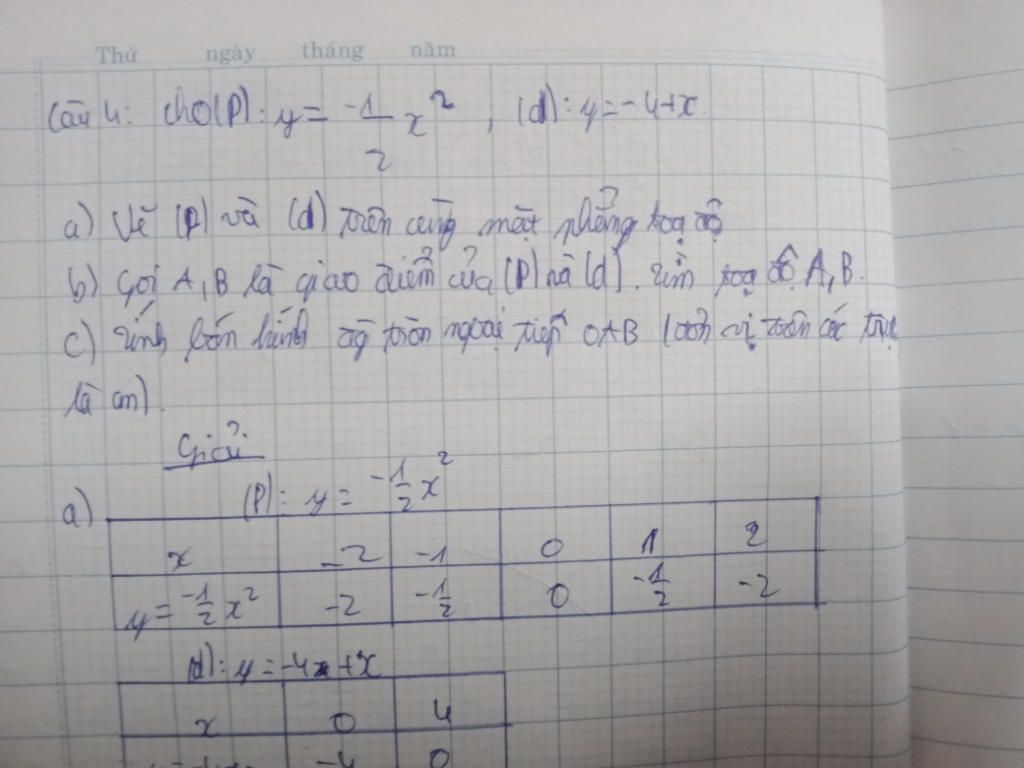 Thứ ngày tháng năm
Câu 4: cho (P): y = -1/2 x², (d): y = -4+x
a) Vẽ (P) và (d) trên cùng mặt phẳng toạ độ
b) Gọi A, B là giao điểm của (P) và (d). Tìm toạ độ A, B.
c) Tính bán kính đg tròn ngoại tiếp OAB (đơn vị trên các trục
là cm).
Giải
a) (P): y = -1/2 x²
x -2 -1 0 1 2
y = -1/2 x² -2 -1/2 0 -1/2 -2
(d): y = -4+x
x 0 4
-4 0